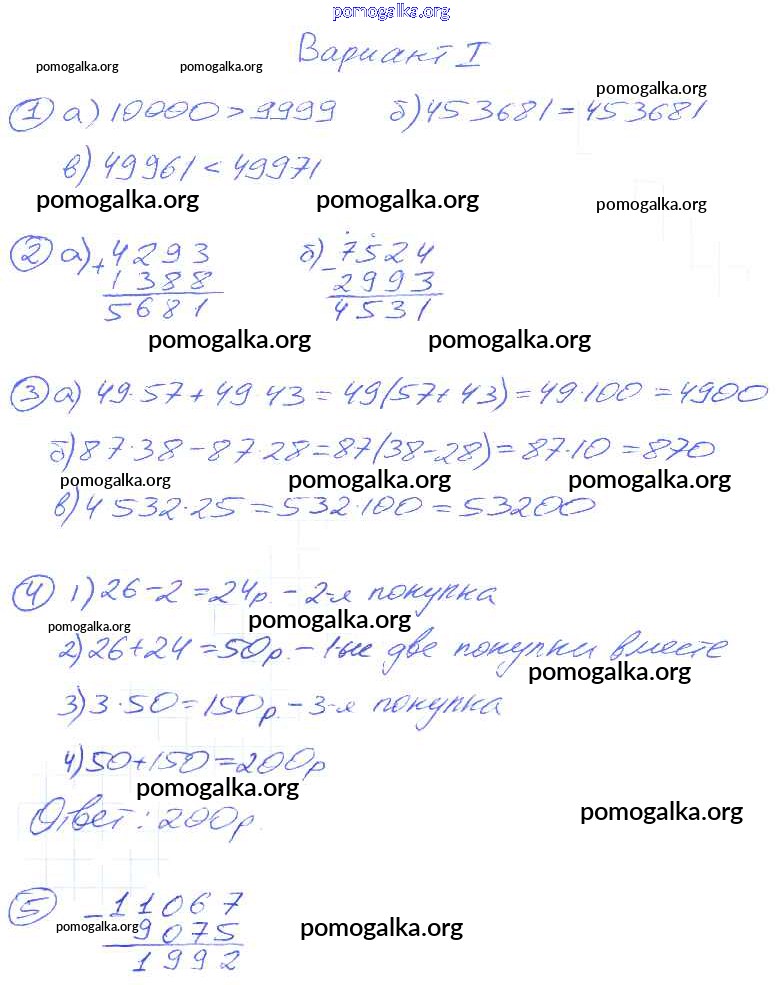 pomogalka.org
Вариант I
pomogalka.org pomogalka.org
pomogalka.org
1 а) 10000 > 9999 б) 453681 = 453681
в) 49961 < 49971
pomogalka.org pomogalka.org pomogalka.org
2 а) + 4293 б) - 7524
1388 2993
5681 4531
pomogalka.org pomogalka.org
3 а) 49·57 + 49·43 = 49(57+43) = 49·100 = 4900
б) 87·38 - 87·28 = 87(38-28) = 87·10 = 870
pomogalka.org pomogalka.org pomogalka.org
в) 4 532·25 = 532·100 = 53200
4 1) 26-2 = 24р. - 2-я покупка
pomogalka.org pomogalka.org
2) 26+24 = 50р. - 1-ые две покупки вместе
pomogalka.org
3) 3·50 = 150р. - 3-я покупка
4) 50+150 = 200р
pomogalka.org
Ответ: 200р.
pomogalka.org
5 - 11067
pomogalka.org 9075 pomogalka.org
1992